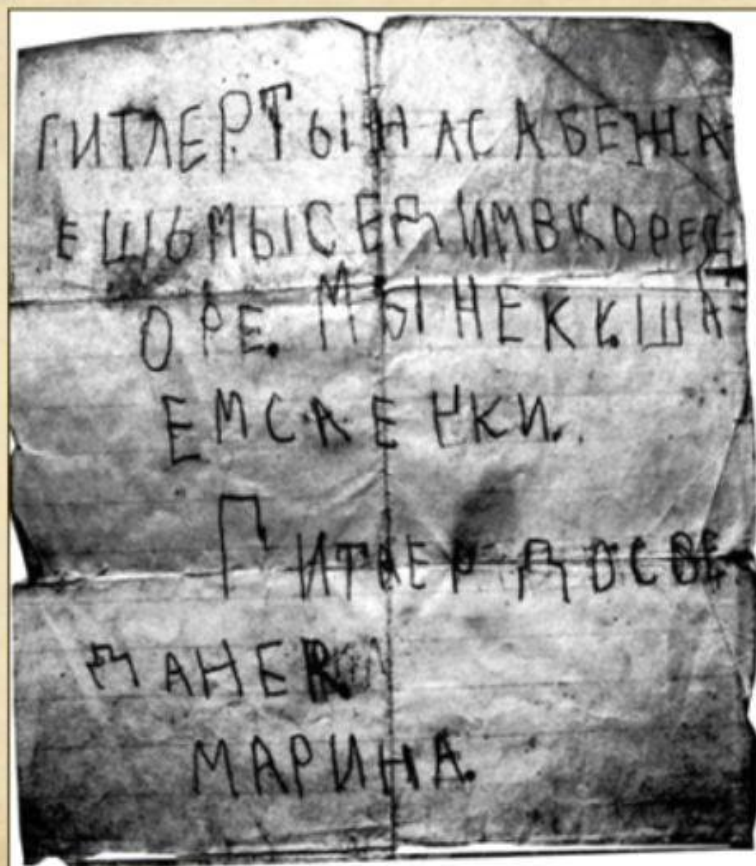 ГИТЛЕР ТЫ НАС АБЕЖА
ЕШЬ МЫ СЕДИМ В КОРЕД
ОРЕ. МЫ НЕ К
ЕМ САЕЧКИ.
ГИТЛЕР ДОСВЕ
ДАНЕЯ
МАРИНА.